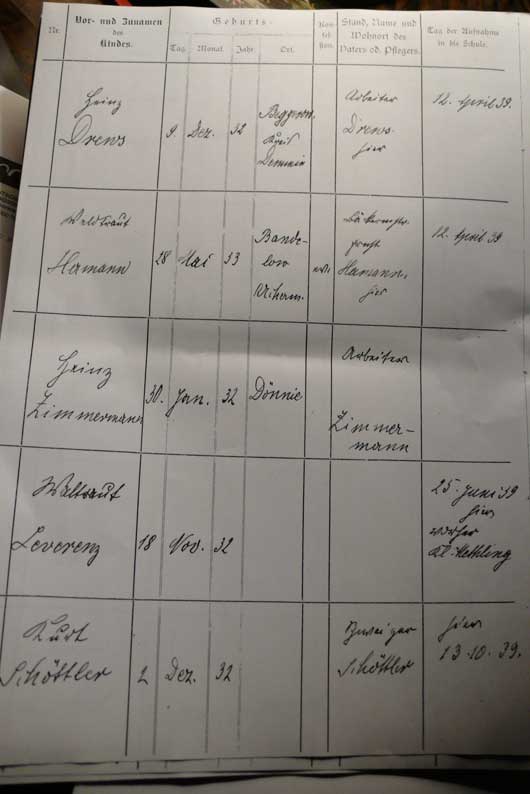 Nr.
Vor- und Zunamen
des
Kindes.
Geburts-
Tag.
Monat.
Jahr.
Ort.
Kon-
fes-
sion.
Stand, Name und
Wohnort des
Vaters od. Pflegers.
Tag der Aufnahme
in die Schule.
Heinz
Drews
9
Dez.
32
Beggerow,
Kreis
Demmin
Arbeiter
Drews.
hier
12. April 39.
Waldtraut
Hamann
28
Mai
33
Bande-
low
Hamann,
hier
12. April 39
Heinz
Zimmermann
30.
Jan.
32
Dönnie
Arbeiter
Zimmer-
mann
Waltraut
Leverenz
18
Nov.
32
25. Juni 39
hier
vorher
Kl-Methling
Kurt
Schöttler
2
Dez.
32
Schöttler
hier
13.10.39.